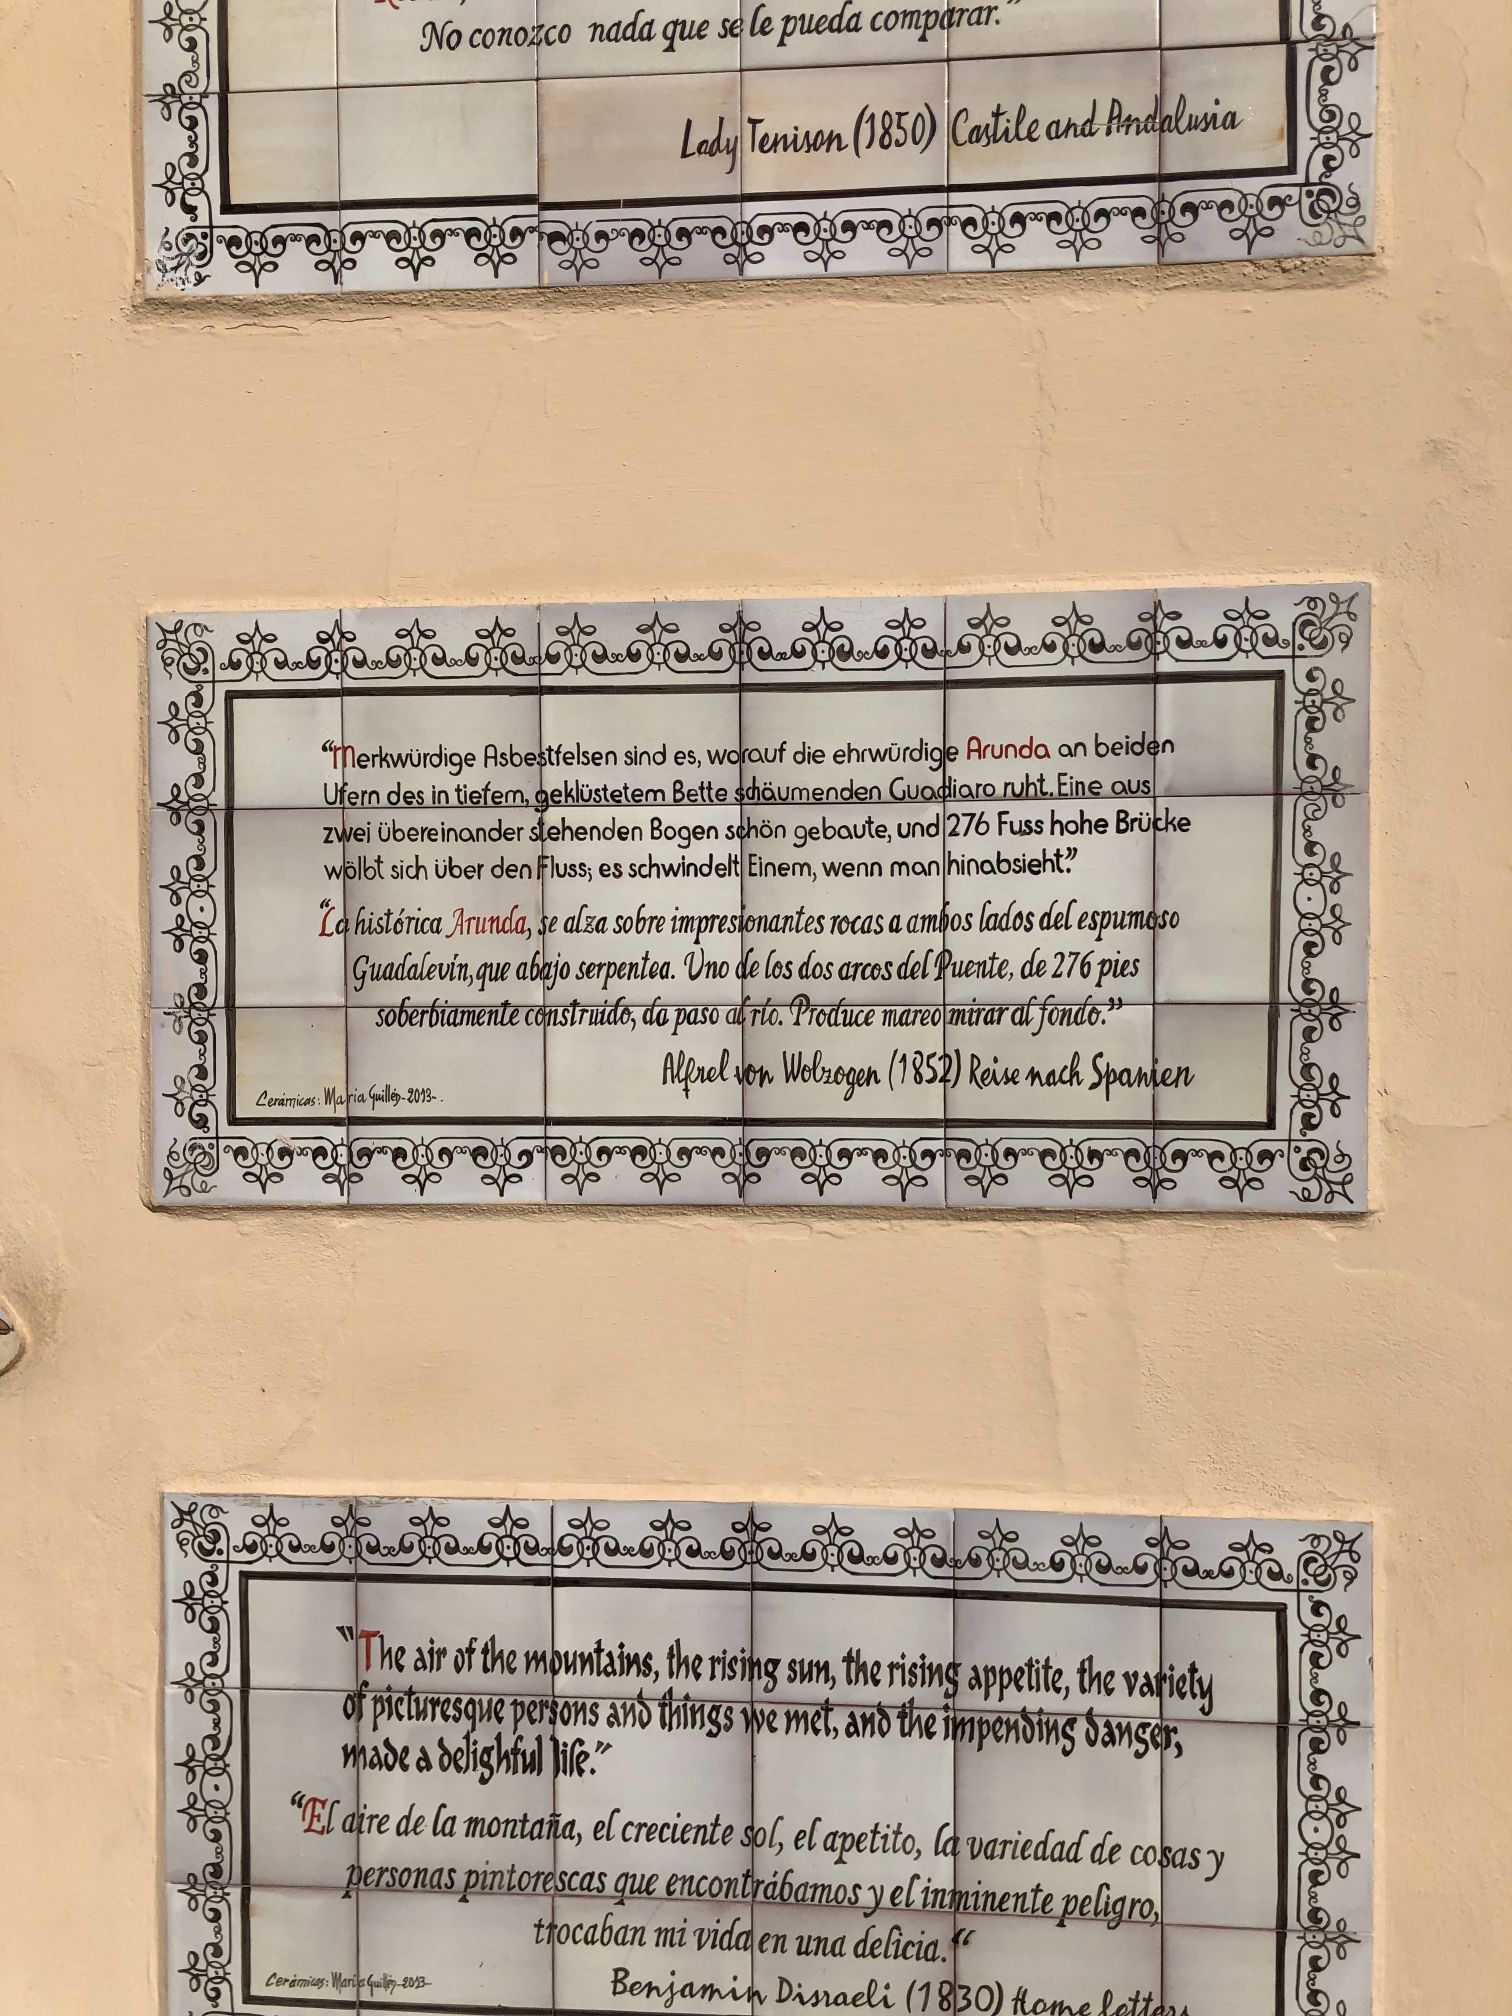 No conozco nada que se le pueda comparar."
Lady Tenison (1850) Castile and Andalusia
"Merkwürdige Asbestfelsen sind es, worauf die ehrwürdige Arunda an beiden
Ufern des in tiefem, geklüstetem Bette schäumenden Guadiaro ruht. Eine aus
zwei übereinander stehenden Bogen schön gebaute, und 276 Fuss hohe Brücke
wölbt sich über den Fluss; es schwindelt Einem, wenn man hinabsieht."
"La histórica Arunda, se alza sobre impresionantes rocas a ambos lados del espumoso
Guadalevín, que abajo serpentea. Uno de los dos arcos del Puente, de 276 pies
soberbiamente construido, da paso al río. Produce mareo mirar al fondo."
Alfrel von Wolzogen (1852) Reise nach Spanien
Cerámicas: Maria Guillén-2013-.
"The air of the mountains, the rising sun, the rising appetite, the variety
of picturesque persons and things we met, and the impending danger,
made a delighful life."
"El aire de la montaña, el creciente sol, el apetito, la variedad de cosas y
personas pintorescas que encontrábamos y el inminente peligro,
trocaban mi vida en una delicia."
Cerámicas: Maria Guillén-2013-
Benjamin Disraeli (1830) Home letters